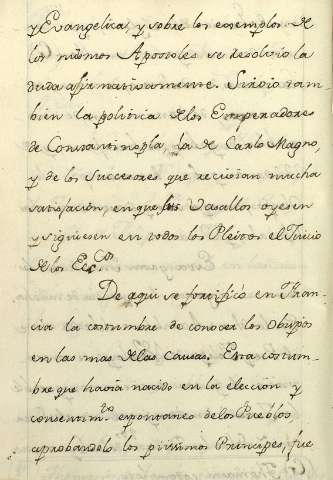 y Evangelica, y sobre los exemplos de
los mismos Apostoles se resolvio la
duda afirmativamente. Sirvio tam
bien la politica de los Emperadores
de Constantinopla, la de Carlo Magno,
y de los Successores que recivian mucha
satisfacion, en que sus Vasallos oyesen
y siguiesen en todos los Pleitos el Juicio
de los Ecc.cos
De aqui se fortificó en Fran
cia la costumbre de conocer los Obispos
en las mas de las Causas. Esta costum
bre que havia nacido en la eleccion y
consentim.to espontaneo de los Pueblos
aprobandolo los mismos Principes, fue